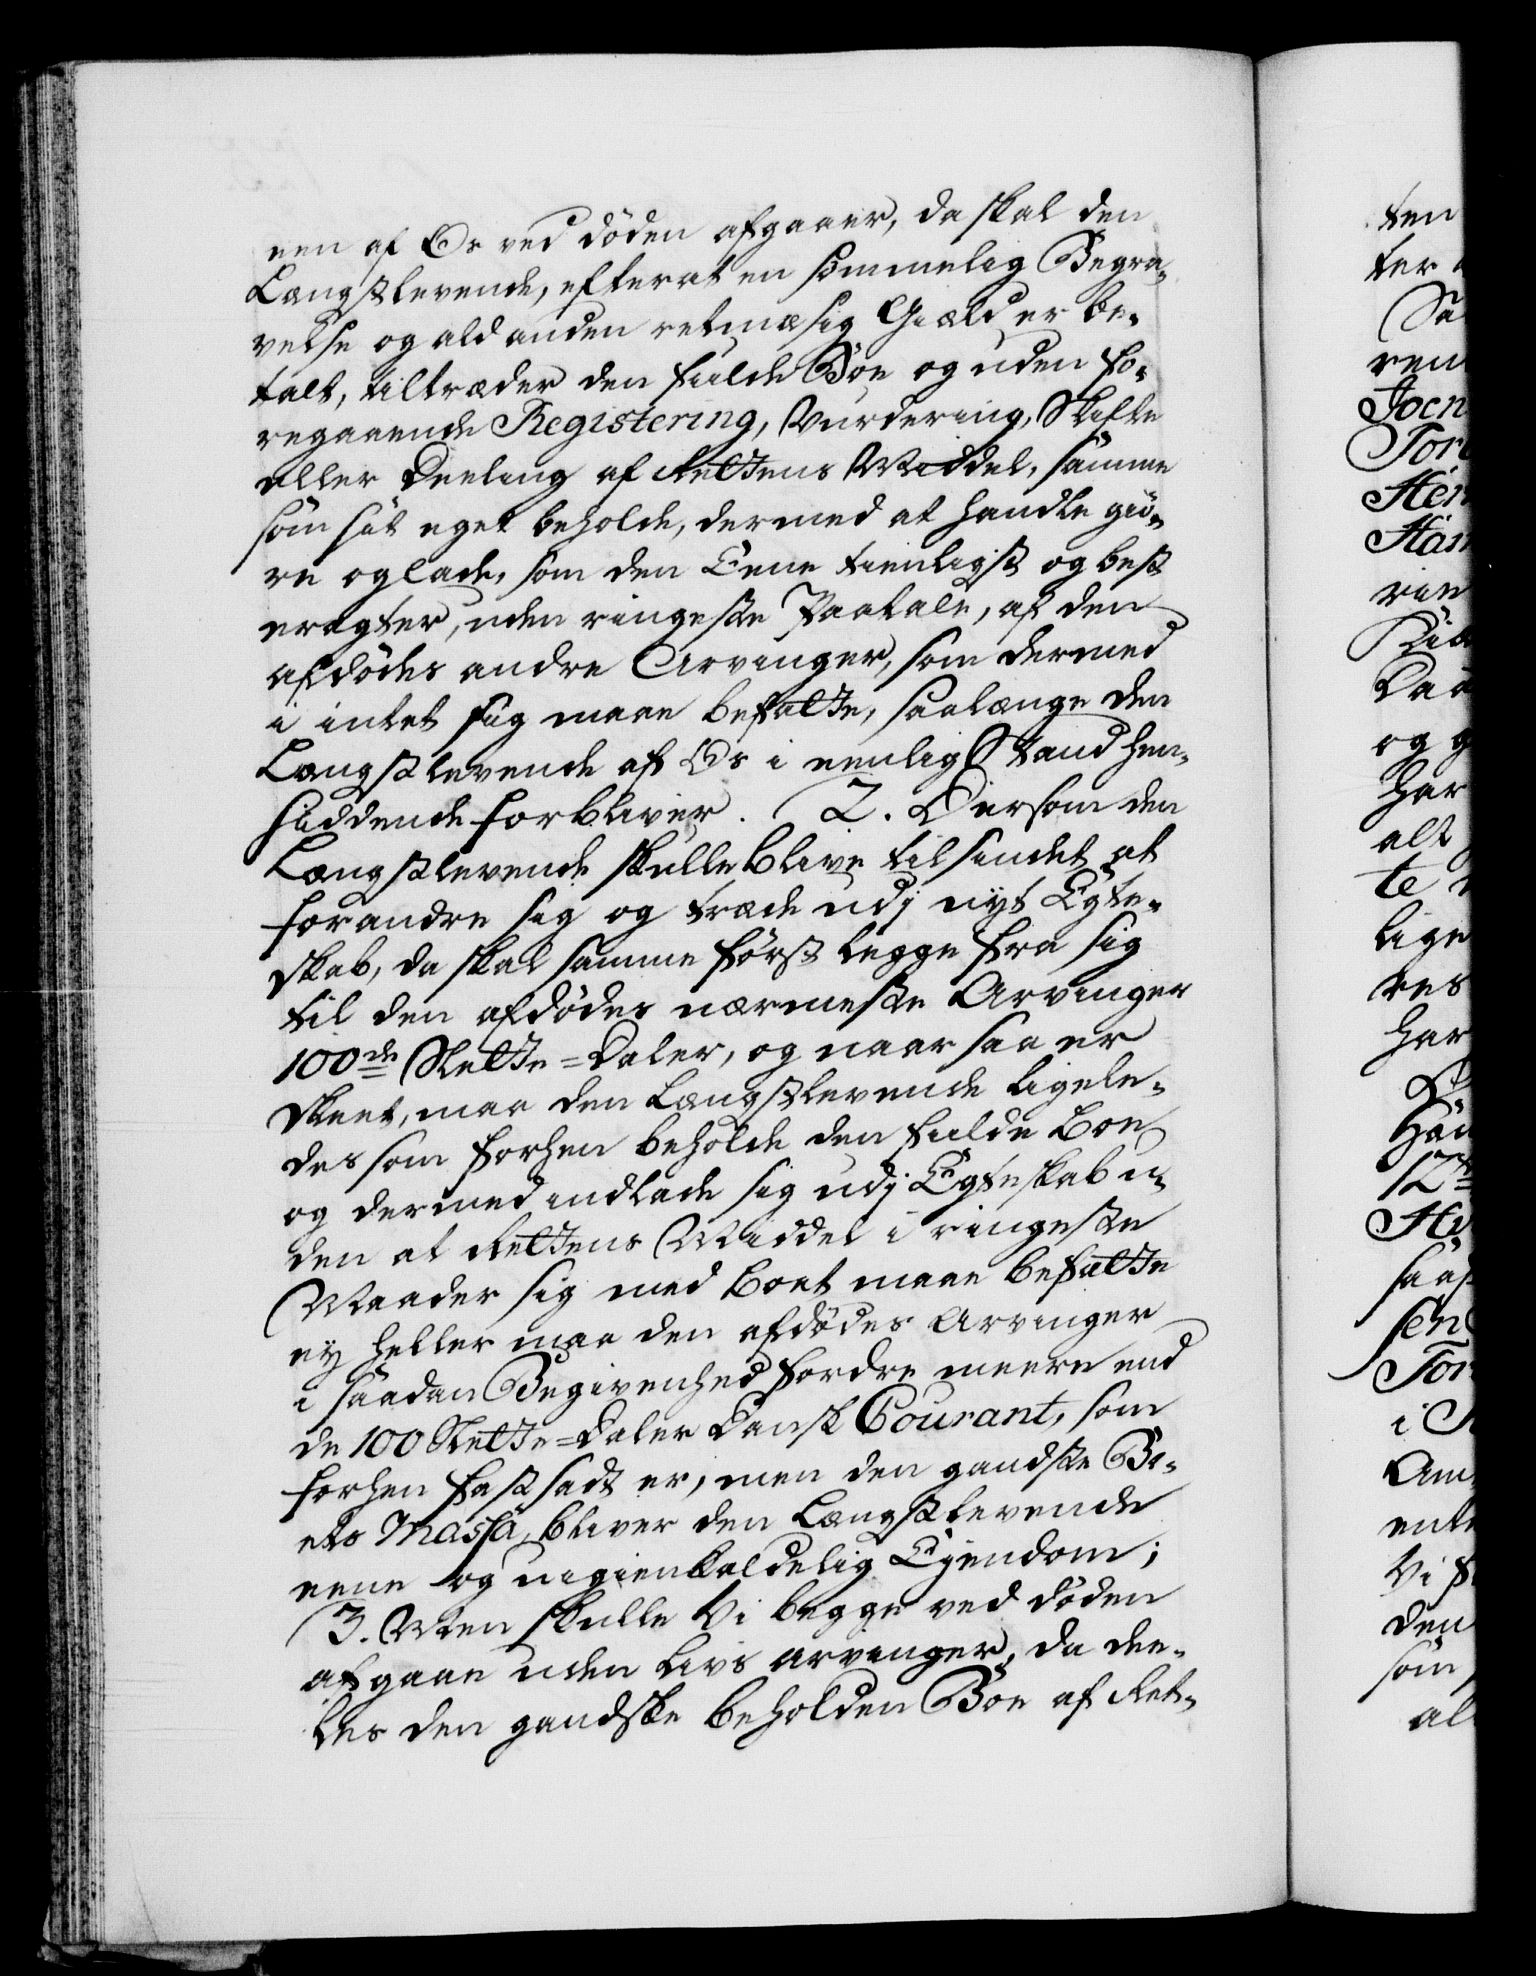 een af Os ved döden afgaaer, da skal den
Længstlevende, efterat en sömmelig Begra-
velse og ald anden retmæsig Giæld er be-
talt, tiltræder den fulde Boe og uden fo-
regaaende Registering, Vurdering, Skifte
eller Deeling af Rettens Middel, samme
som sit eget beholde, dermed at handle giö-
re og lade, som den Eene tienligst og best
eragter, uden ringeste Paatale, af den
afdödes andre Arvinger, som dermed
i intet sig maae befatte, saalænge den
Længstlevende af Os i eenlig Stand hen-
siddende forbliver. 2. Dersom den
Længstlevende skulle blive tilsindet at
forandre sig og træde udj nyt Egte-
skab, da skal samme först legge fra sig
til den afdödes nærmeste Arvinger
100de Slette-Daler, og naar saa er
skeet, maa den Længstlevende ligele-
des som forhen beholde den fulde Boe
og dermed indlade sig udj Egteskab u-
den at Rettens Middel i ringeste
Maader sig med Boet maae befatte
ey heller maa den afdödes Arvinger
i saadan Begivenhed fordre meere end
de 100 Slette-Daler Dansk Courant, som
forhen fastsadt er, men den gandske Bo-
ets Massa, bliver den Længstlevende
eene og uigienkaldelig Ejendom;
3. Men skulle Vi begge ved döden
afgaae uden livs arvinger, da dee-
les den gandske beholden Boe af Ret-